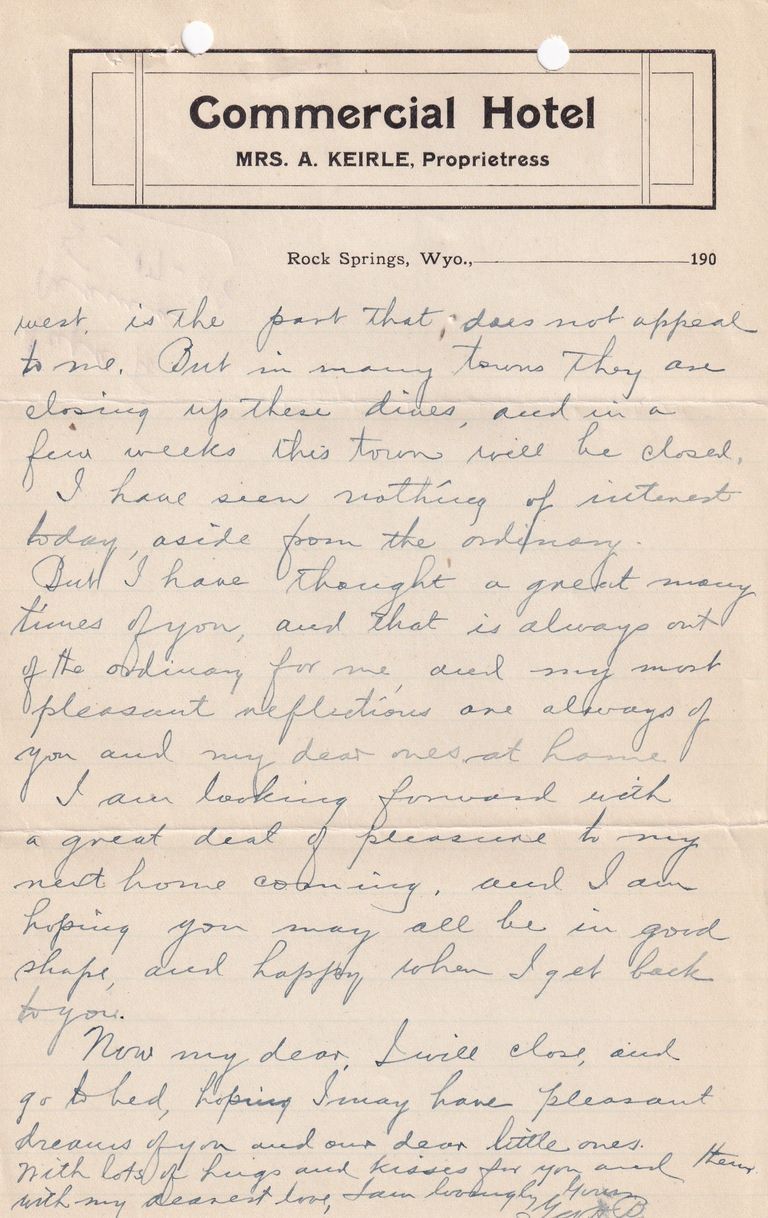 Commercial Hotel
MRS. A. KEIRLE, Proprietress
Rock Springs, Wyo., 190
west, is the part that does not appeal
to me. But in many towns they are
closing up these dives, and in a
few weeks this town will be closed.
I have seen nothing of interest
today, aside from the ordinary.
But I have thought a great many
times of you, and that is always out
of the ordinary for me, and my most
pleasant reflections are always of
you and my dear ones at home
I am looking forward with
a great deal of pleasure to my
next home coming, and I am
hoping you may all be in good
shape, and happy when I get back
to you.
Now my dear, I will close, and
go to bed, hoping I may have pleasant
dreams of you and our dear little ones.
With lots of hugs and kisses for you and them
with my dearest love, I am lovingly Yours